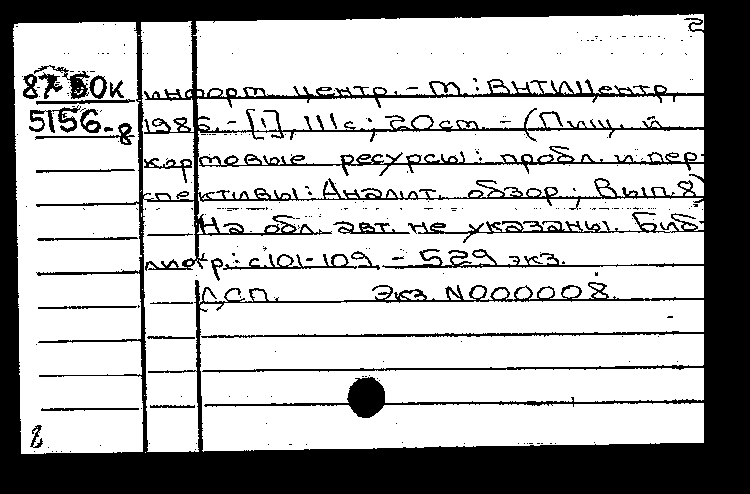 2
87-50к
5156-8
информ. центр. - М.: ВНТИЦентр,
1986. - [1], 111 с.; 20 см. - (Пищ. и
кормовые ресурсы: пробл. и пер-
спективы: Аналит. обзор; Вып. 8)
На обл. авт. не указаны. Биб-
лиогр.: с. 101-109. - 529 экз.
ДСП. Экз. N000008.
2